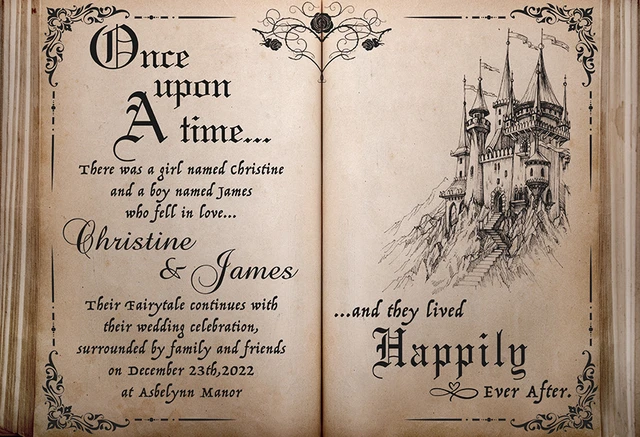 Once
upon
A time...
There was a girl named Christine
and a boy named James
who fell in love...
Christine
& James
Their Fairytale continues with
their wedding celebration,
surrounded by family and friends
on December 23th,2022
at Asbelynn Manor
...and they lived
Happily
Ever After.